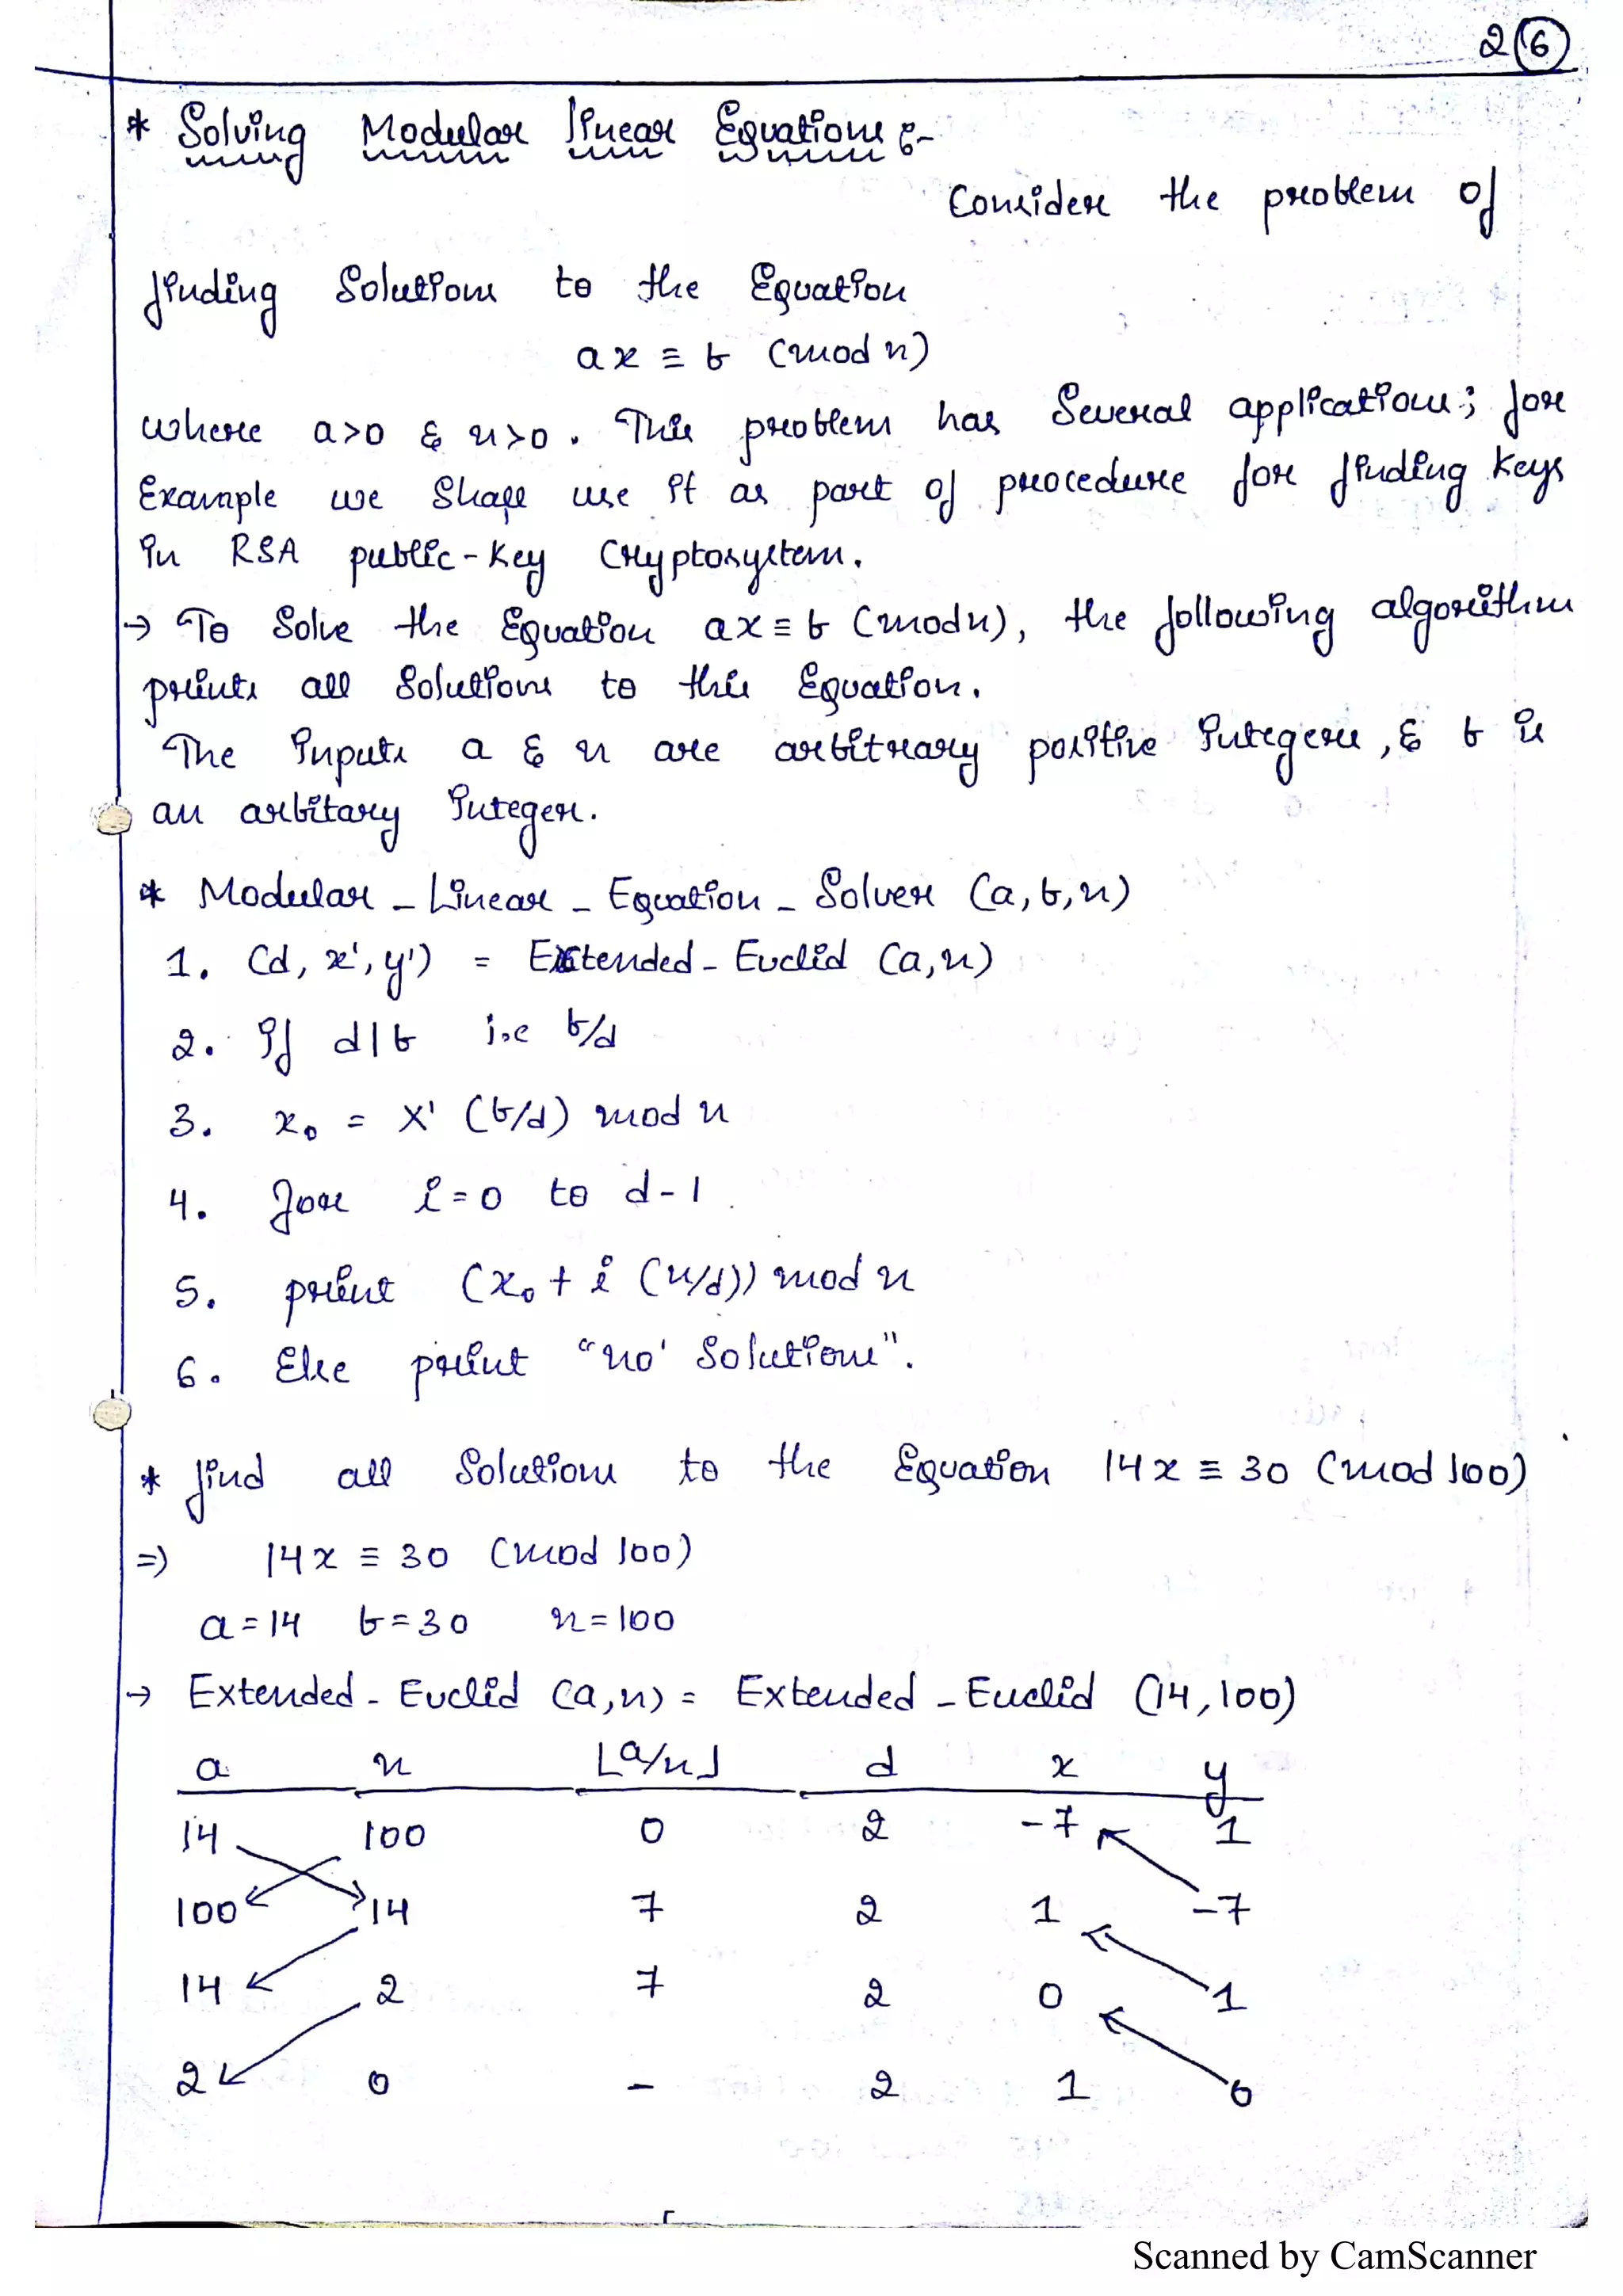 2 6
* Solving Modular linear Equations :-
Consider the problem of
finding Solutions to the Equation
ax ≡ b (mod n)
where a>0 & n>0. This problem has Several applications; for
Example we Shall use it as part of procedure for finding keys
in RSA public-key Cryptosystem.
→ To Solve the Equation ax ≡ b (mod n), the following algorithm
prints all Solutions to this Equation.
The Inputs a & n are arbitrary positive Integers, & b is
an arbitary Integer.
* Modular_Linear_Equation_Solver (a,b,n)
1. (d, x', y') = Extended_Euclid (a,n)
2. If d|b i.e b/d
3. x₀ = x' (b/d) mod n
4. for i=0 to d-1
5. print (x₀ + i (n/d)) mod n
6. Else print "no' Solutions".
* find all Solutions to the Equation 14x ≡ 30 (mod 100)
⇒ 14x ≡ 30 (mod 100)
a=14 b=30 n=100
→ Extended_Euclid (a,n) = Extended_Euclid (14,100)
a n ⌊a/n⌋ d x y
14 100 0 2 -7 1
100 14 7 2 1 -7
14 2 7 2 0 1
2 0 - 2 1 0
Scanned by CamScanner